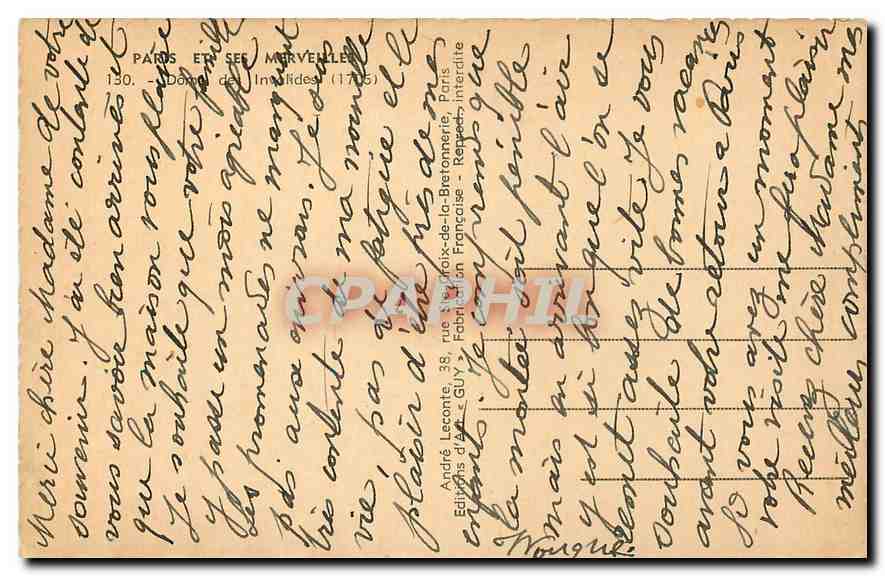 PARIS ET SES MERVEILLES
130. - Dôme des Invalides (1705)
André Leconte, 38, rue Ste-Croix-de-la-Bretonnerie, Paris
Editions d'Art « GUY » Fabrication Française - Reprod. interdite
CPAPHIL
Merci chère Madame de votre
souvenir. J'ai été contente de
vous savoir bien arrivés et
que la maison vous plaise
Je souhaite que votre fille
y passe un mois agréable
Les promenades ne manquent
pas aux environs. Je suis
très contente de ma nouvelle
vie, pas de fatigue et le
plaisir d'être près de mes
enfants. Je comprends que
la montée soit pénible
mais en arrivant l'air
y est si bon que l'on se
remet assez vite Je vous
souhaite de bonnes vacances
avant votre retour à Paris
Si vous avez un moment
votre visite me fera plaisir
Recevez chère Madame mes
meilleurs compliments